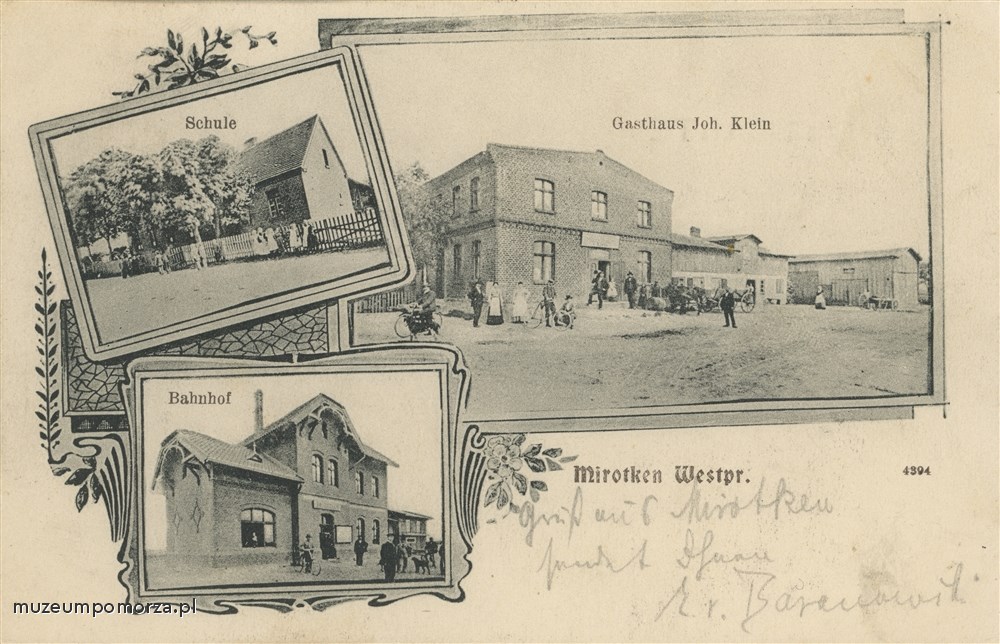 Schule
Gasthaus Joh. Klein
Bahnhof
Mirotken Westpr.
4394
Gruß aus Mirotken
sendet Ihnen
v. Baranowski
muzeumpomorza.pl